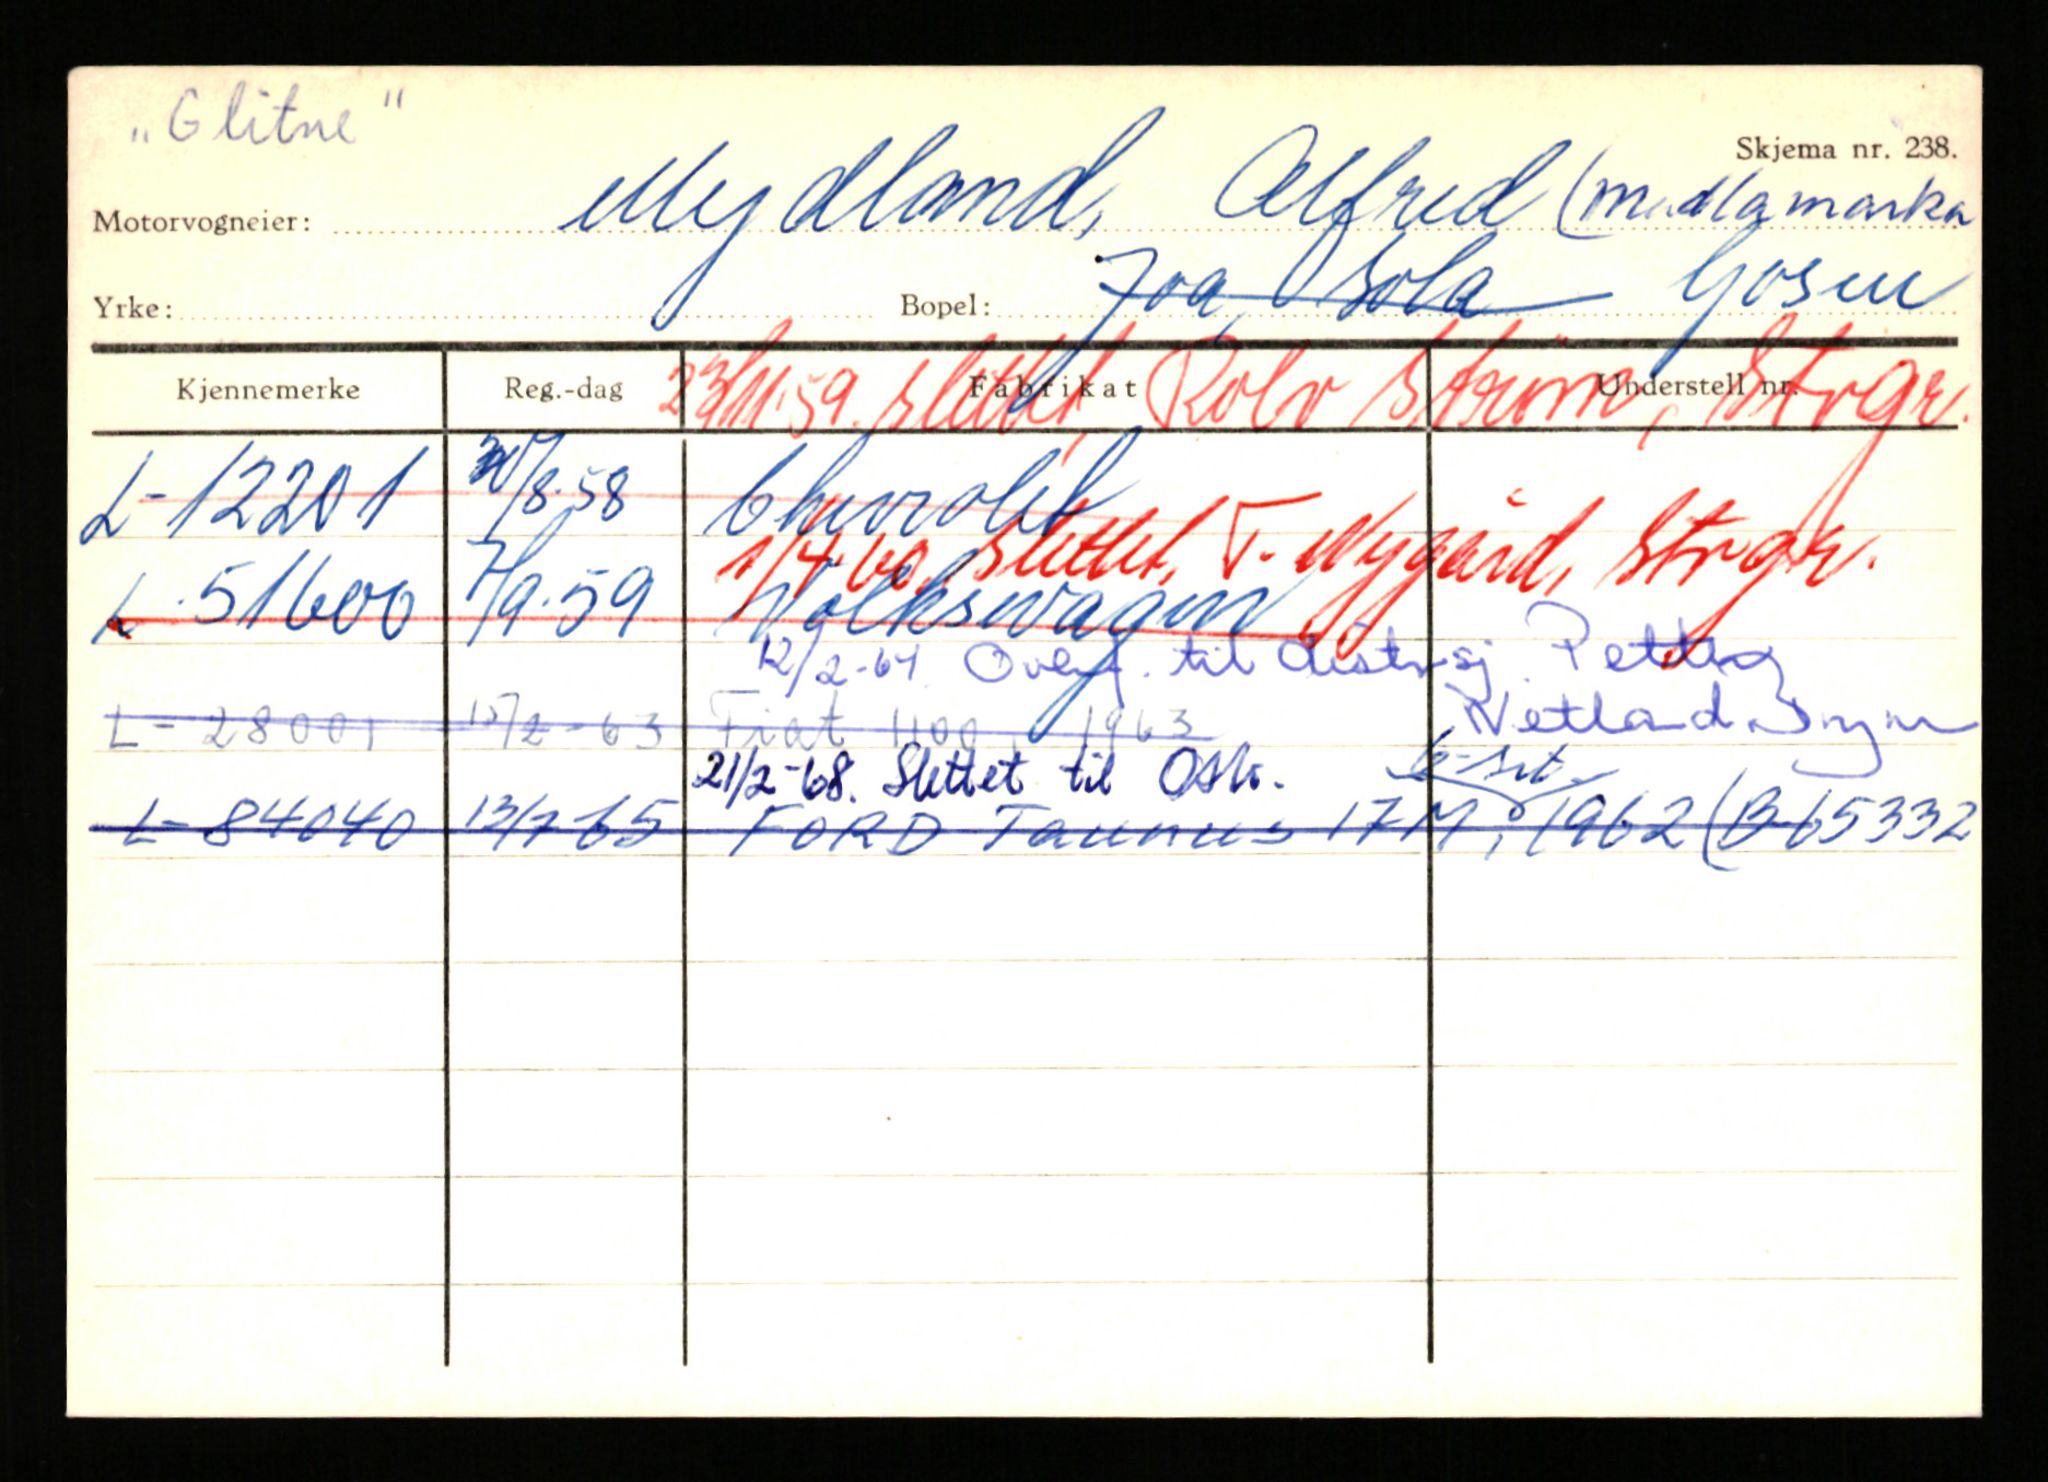 „Glitne"
Skjema nr. 238.
Motorvogneier: Mydland, Alfred (Madlamarka
Yrke: Bopel: Joa, Sola Gosen
Kjennemerke Reg.-dag Fabrikat Understell nr.
23/11.59. slettet Rolv Strøm, Strgr.
L-12201 /8.58 Chevrolet
1/4.60. Slettet, T. Nygård, Strgr.
L.51600 7/9.59 Volkswagen
12/2-64 Overf. til distrsj. Petter
Netland
L-28001 15/2-63 Fiat 1100, 1963
21/2-68. Slettet til Oslo.
L-84040 13/7-65 FORD Taunus 17M, 1962 (B-65332